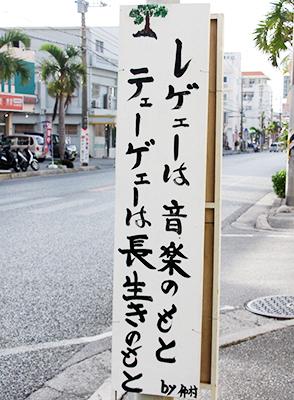 レゲェーは音楽のもと
テェーゲェーは長生きのもと
by 仲村